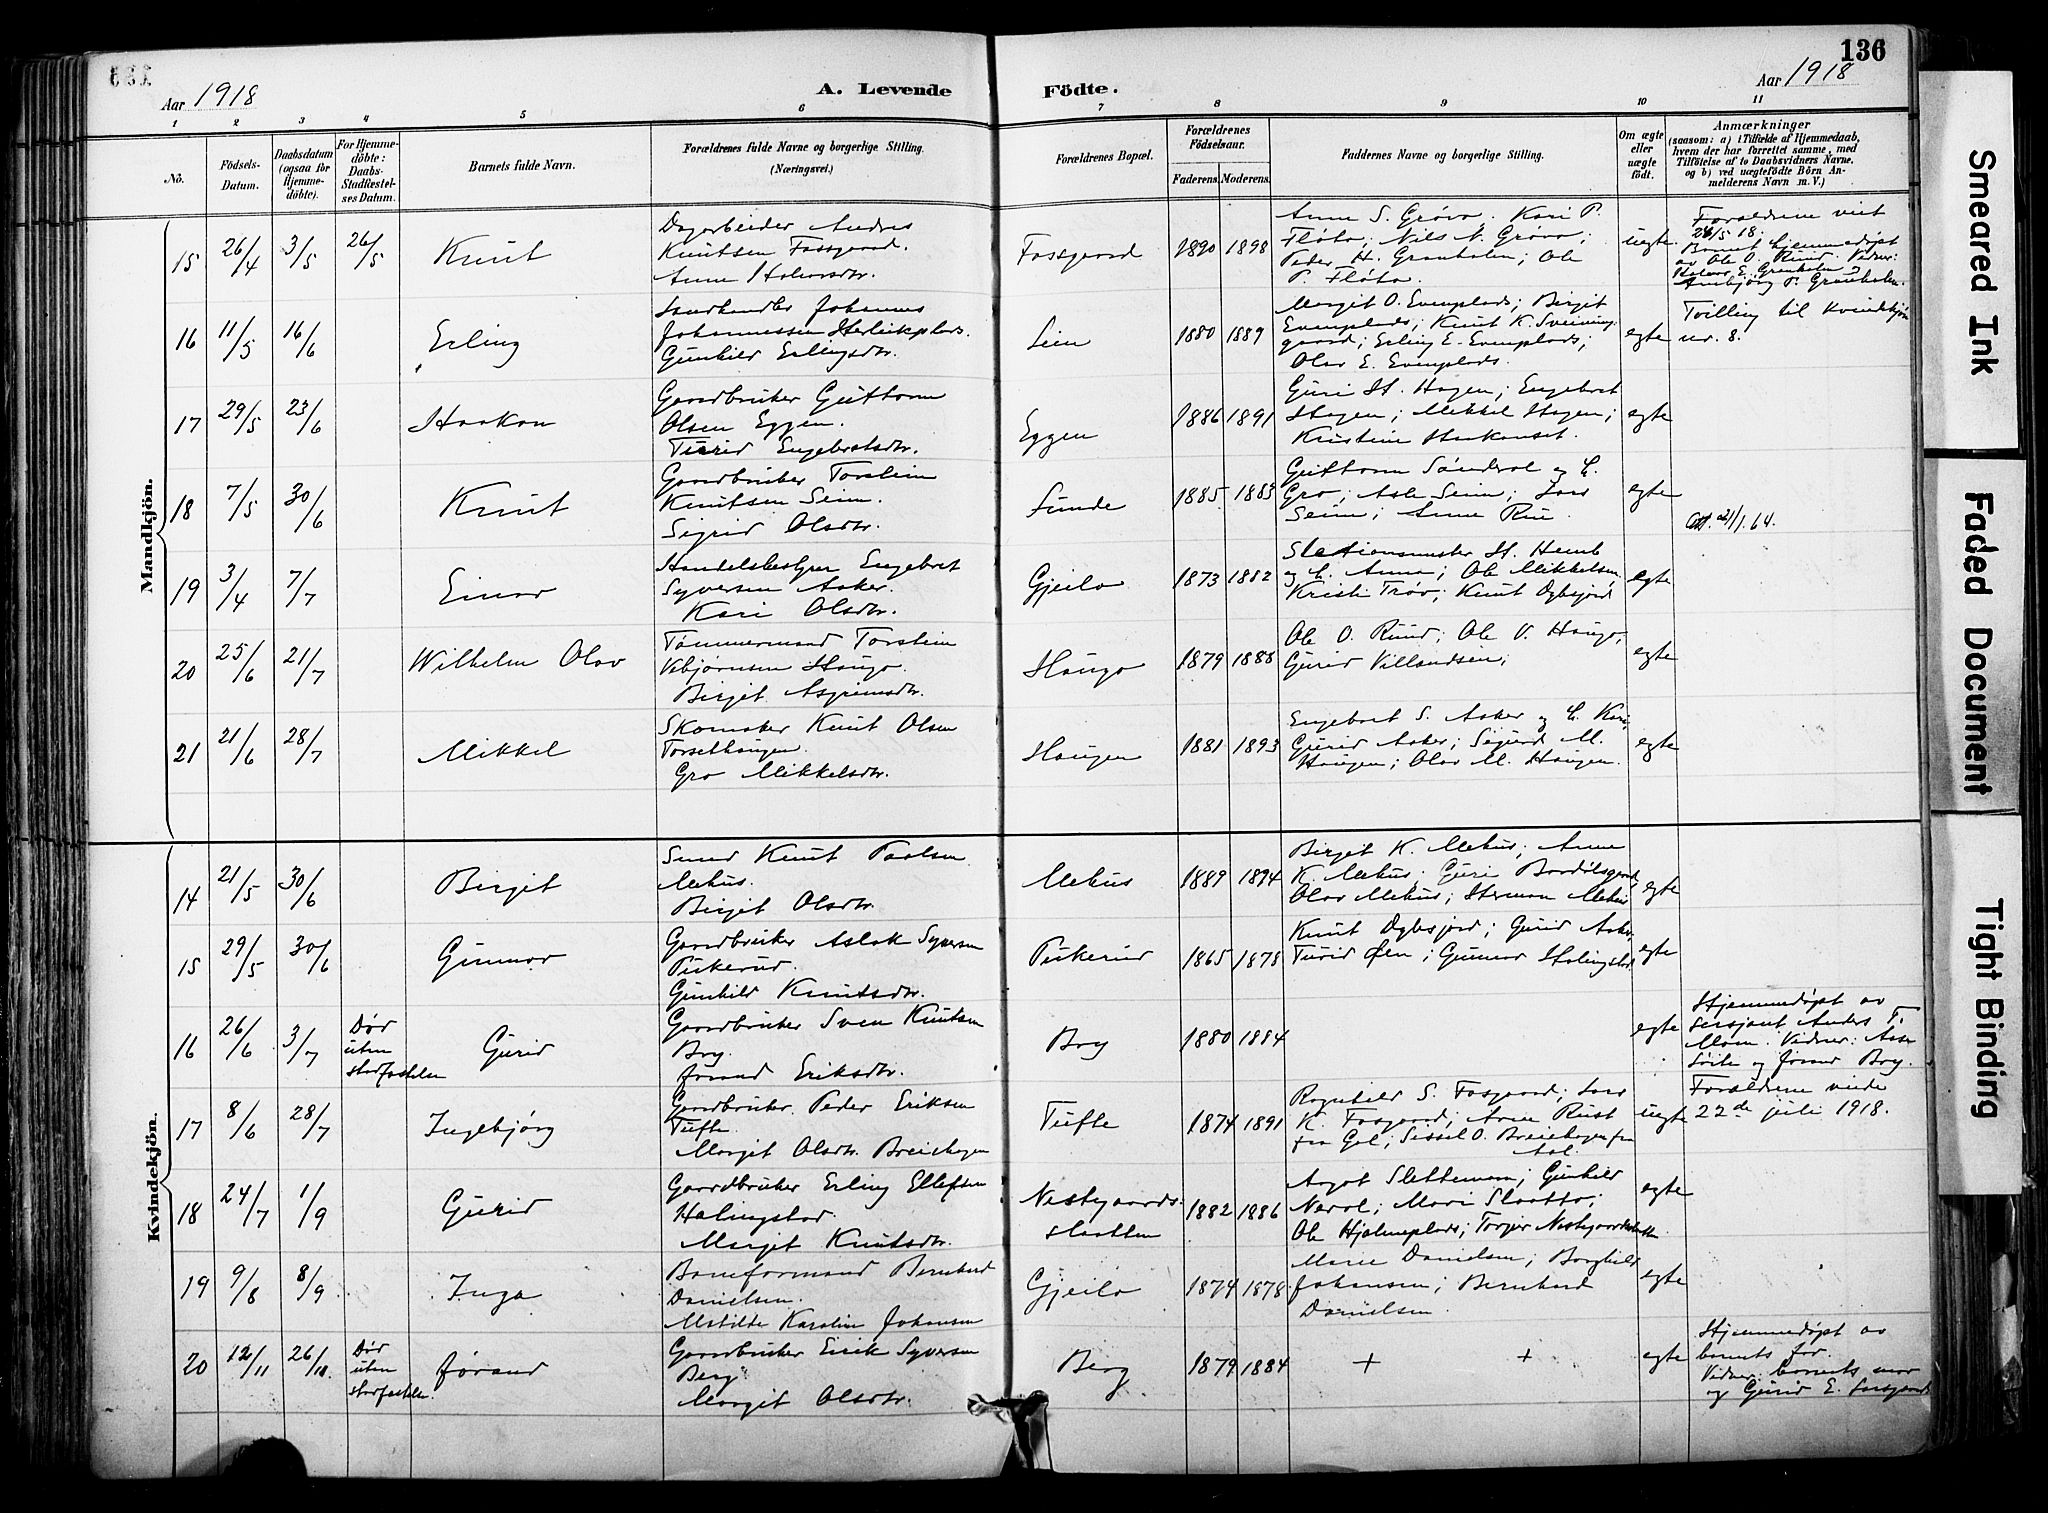 136
Aar 1918
A. Levende Födte.
Aar 1918
1 2 3 4 5 6 7 8 9 10 11
No.
Födsels-
Datum.
Daabsdatum
(ogsaa for
Hjemme-
döbte).
For Hjemme-
döbte:
Daabs-
Stadfæstel-
ses Datum.
Barnets fulde Navn.
Forældrenes fulde Navne og borgerlige Stilling.
(Næringsvei.)
Forældrenes Bopæl.
Forældrenes
Födselsaar.
Faderens. Moderens.
Faddernes Navne og borgerlige Stilling.
Om ægte
eller
uægte
födt.
Anmærkninger
(saasom: a) i Tilfælde af Hjemmedaab,
hvem der har forrettet samme, med
Tilföielse af to Daabsvidners Navne,
og b) ved uægtefödte Börn An-
melderens Navn m. V.)
Mandkjön.
15 26/4 3/5 26/5 Knut
Dagarbeider Andres
Knutsen Fossgaard.
Anne Halvorsdtr.
Fossgaard 1890 1898
Anne S. Grøva. Kari P.
Fløto; Nils N. Grøvo;
Peder H. Granholm; Ole
P. Fløto.
uegte
Forældrene viet
26/5 18.
Barnet hjemmedøpt
av Ole O. Ruud. Vidner:
Halvor E. Granholm og
Ambjørg P. Granholm.
16 11/5 16/6 Erling
Landhandler Johannes
Johannessen Herleikplads.
Gunhild Erlingsdtr.
Lien 1880 1889
Margit O. Evenplads; Birgit
Evenplads; Knut K. Sveining-
gaard; Erling E. Evenplads;
Olav E. Evenplads.
egte
Tvilling til kvindekjøn
nr. 8.
17 29/5 23/6 Haakon
Gaardbruker Guttorm
Olsen Eggen.
Turid Engebretsdtr.
Eggen 1886 1891
Guri H. Hagen; Engebret
Hagen; Mikkel Hagen;
Kristine Haakonset.
egte
18 7/5 30/6 Knut
Gaardbruker Torstein
Knutsen Seim.
Sigrid Olsdtr.
Sunde 1885 1883
Guttorm Søndrol og h.
Gro; Asle Seim; Lars
Seim; Anne Rue.
egte
Att. 21/1. 64.
19 3/4 7/7 Einar
Handelsbestyrer Engebret
Syversen Aaker.
Kari Olsdtr.
Gjeilo 1873 1882
Stationsmester H. Hemb
og h. Anna; Ole Mikkelsen,
Kristi Trøo; Knut Dybsjord
egte
20 25/6 21/7 Wilhelm Olav
Tømmermand Torstein
Vebjørnsen Haugo.
Birgit Asgrimsdtr.
Haugo 1879 1888
Ole O. Ruud; Ole V. Haugo;
Gurid Villandsein;
egte
21 21/6 28/7 Mikkel
Skomaker Knut Olsen
Torsethaugen.
Gro Mikkelsdtr.
Haugen 1881 1893
Engebret S. Aaker og h. Kari,
Gurid Aaker; Sigurd M.
Haugen; Olav M. Haugen.
egte
Kvindekjön.
14 21/5 30/6 Birgit
Smed Knut Paalsen
Mehus.
Birgit Olsdtr.
Mehus 1889 1894
Birgit K. Mehus; Anne
K. Mehus; Guri Bardølsgard,
Olav Mehus; Herman Mehus
egte
15 29/5 30/6 Gunnor
Gaardbruker Aslak Syversen
Pukerud.
Gunhild Knutsdtr.
Pukerud 1865 1878
Knut Dybsjord; Gurid Aaker,
Turid Øen; Gunnar Halingstad
egte
16 26/6 3/7
Død
uten
stadfæstelse
Gurid
Gaardbruker Sven Knutsen
Bry.
Jørand Eriksdtr.
Bry 1880 1884
egte
Hjemmedøpt av
sersjant Anders T.
Moen. Vidner:
og Jørand Bry.
17 8/6 28/7 Ingebjørg
Gaardbruker Peder Eriksen
Tufte.
Margit Olsdtr. Breiehagen
Tufte 1874 1891
Ragnhild S. Fosgaard; Lars
K. Fosgaard; Arne Rust
fra Gol; Sissel O. Breiehagen fra
Aal.
uegte
Forældrene viede
22de juli 1918.
18 24/7 1/9 Gurid
Gaardbruker Erling Ellefsen
Halingstad.
Margit Knutsdtr.
Nestegaards-
slaatten
1882 1886
Argot Slettemoen; Gunhild
Neraal; Mari Slaatto;
Ole Hjelmeplads; Torger Nestegaardslaatten
egte
19 9/8 8/9 Inga
Baneformand Bernhard
Danielsen.
Matilde Karoline Johansen
Gjeilo 1874 1878
Marie Danielsen; Borghild
Johansen; Bernhard
Danielsen.
egte
20 12/11 26/10.
Død
uten
stadfæstelse.
Jørand
Gaardbruker Eirik Syversen
Berg
Margit Olsdtr.
Berg 1879 1884
+ +
egte
Hjemmedøpt av
barnets far.
Vidner: barnets mor
og Gurid E.
Smeared Ink
Faded Document
Tight Binding